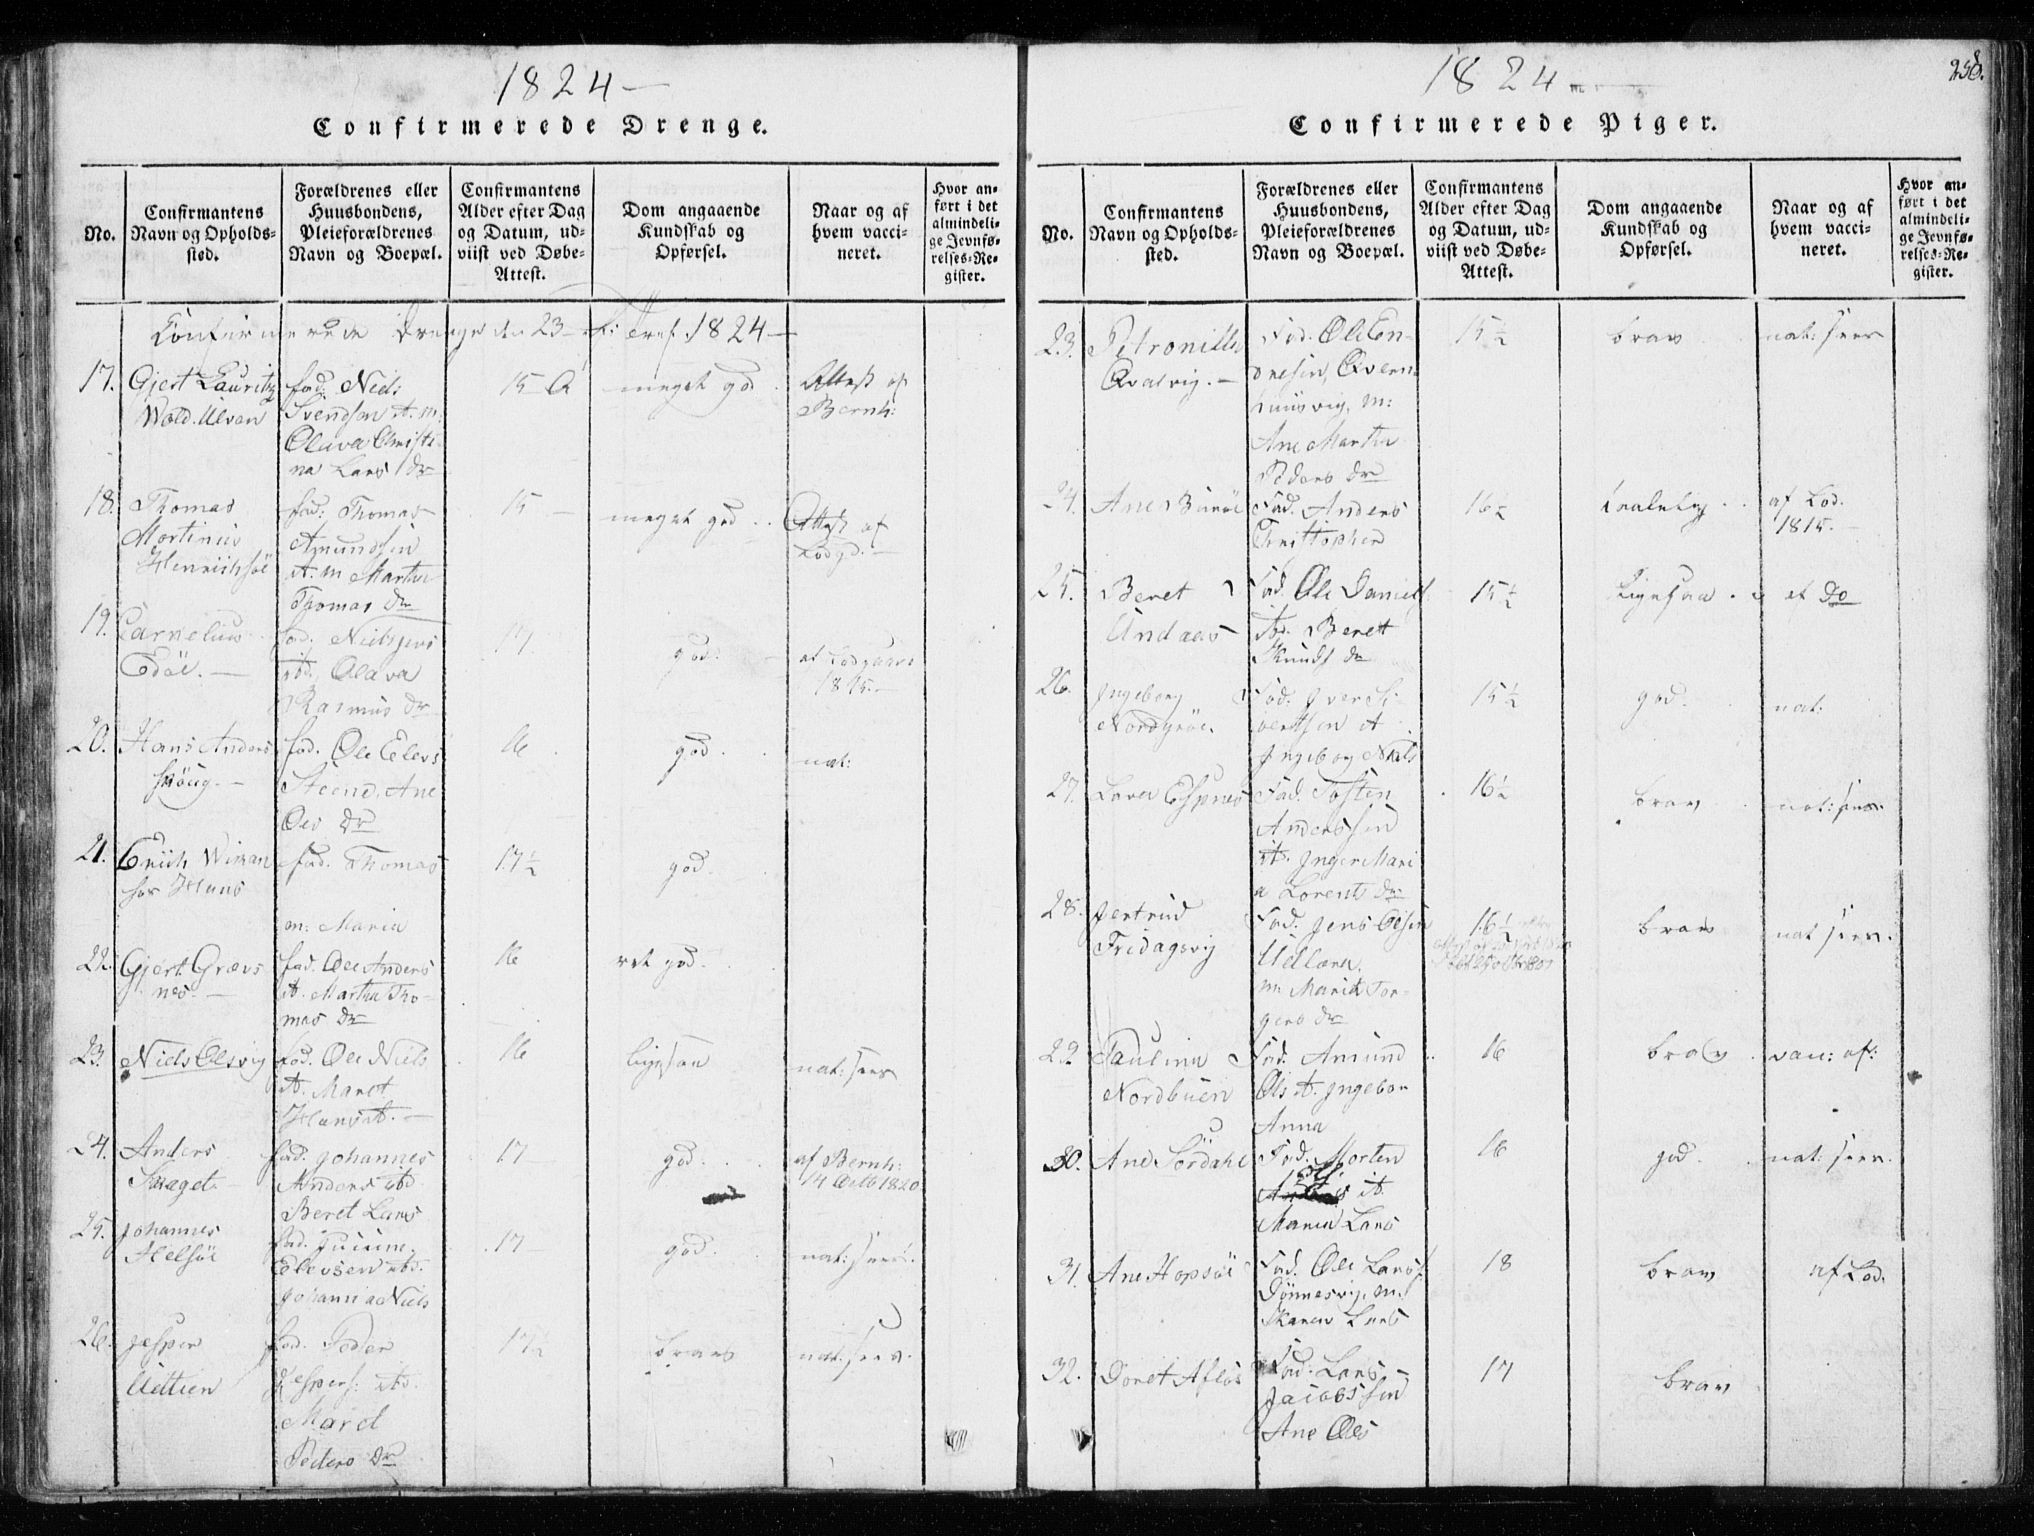 1824 —
Confirmerede Drenge.
No.
Confirmantens
Navn og Opholds-
sted.
Forældrenes eller
Huusbondens,
Pleieforældrenes
Navn og Boepæl.
Confirmantens
Alder efter Dag
og Datum, ud-
viist ved Døbe-
Attest.
Dom angaaende
Kundskab og
Opførsel.
Naar og af
hvem vacci-
neret.
Hvor an-
ført i det
almindeli-
ge Jevnfø-
relses-Re-
gister.
Confirmerede Drenge den 23 1824 —
17. Gjert Lauritz
Wold. Ulven
fad. Niels
Svendsen m:
Olava Christi
na Lars Dr
15
meget god
Attest af
Bernh:
18. Thomas
Martinus
Henrichsöe
fad: Thomas
Amundsen
m Martha
Thomas Dr
15 —
meget god
Attest af
Lodg. —
19. Cornelius
Edöe. —
fad. Niels Jens
ibd. Olava
Rasmus Dr
17.
god.
af Lodgaard
1815. —
20. Hans Anders
skoug. —
fad. Ole Elevs
Steend. Ane
Oles Dr
16
god.
nat:
21. Erich Wikan
hos Hans
fad. Thomas
m: Maria
17½
god
22. Gjert Grævs
nes. —
fad. Ole Anders
Martha Tho-
mas Dr
16
ret god.
23. Niels Olsvig
fad. Ole Niels
Maret
Hans
16
ligesaa
nat: seer
24. Anders
Skaget
fad. Johannes
Anders ibd.
Beret Lars
17
god.
af Bernh:
14 Octb 1820
25. Johannes
Helsöe
fad.
Elevsen ibd.
Johanna Niels
17
god.
nat: seer.
26. Jesper
Uttien
fad. Peder
Jespers: ibd.
Maret
Peders Dr
17½
brav
nat: seer.
1824 —
258.
Confirmerede Piger.
No.
Confirmantens
Navn og Opholds-
sted.
Forældrenes eller
Huusbondens,
Pleieforældrenes
Navn og Boepæl.
Confirmantens
Alder efter Dag
og Datum, ud-
viist ved Døbe-
Attest.
Dom angaaende
Kundskab og
Opførsel.
Naar og af
hvem vacci-
neret.
Hvor an-
ført i det
almindeli-
ge Jevnfø-
relses-Re-
gister.
23. Petronille
Qvalvig. —
Fad. Ole En-
dresen, Qvern-
huusvig, m:
Ane Martha
Peders Dr
15½
brav
nat: seer
24. Ane Buröe
Fad. Anders
Christopher
16½
taalelig
af Lod.
1815. —
25. Beret
Undaas
Fad. Ole Daniels
ibd. Beret
Knuds Dr
15½
Ligesaa
af Do
26. Ingeborg
Nordgröe.
Fad. Iver Si-
vertsen
Ingeborg Niels
15½
god.
nat:
27. Lava Espnes
Fad. Tosten
Anderssen
Inger Mari
a Lorents Dr
16½
brav
nat: seer.
28. Jertrud
Fridagsvig
Fad. Jens Olsen
m Marit Tor-
gers Dr
16½
brav
nat seer.
29. Paulina
Nordbuen
Fad. Amund
Ols Ingebor
Anna
16
brav
vac: af:
30. Ane Sördahl
Fad. Morten
Maria Lars
16
god.
nat: seer.
31. Ane Hopsöe
Fad. Ole Lars
Dönnesvig. m.
Karen Lars
18
brav
af Lod.
32. Doret Aflös
Fad: Lars
Jacobssen
Ane Oles
17
brav